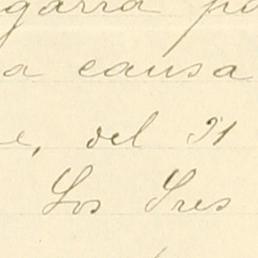 garra po
a causa
e, del 21
Los Tres